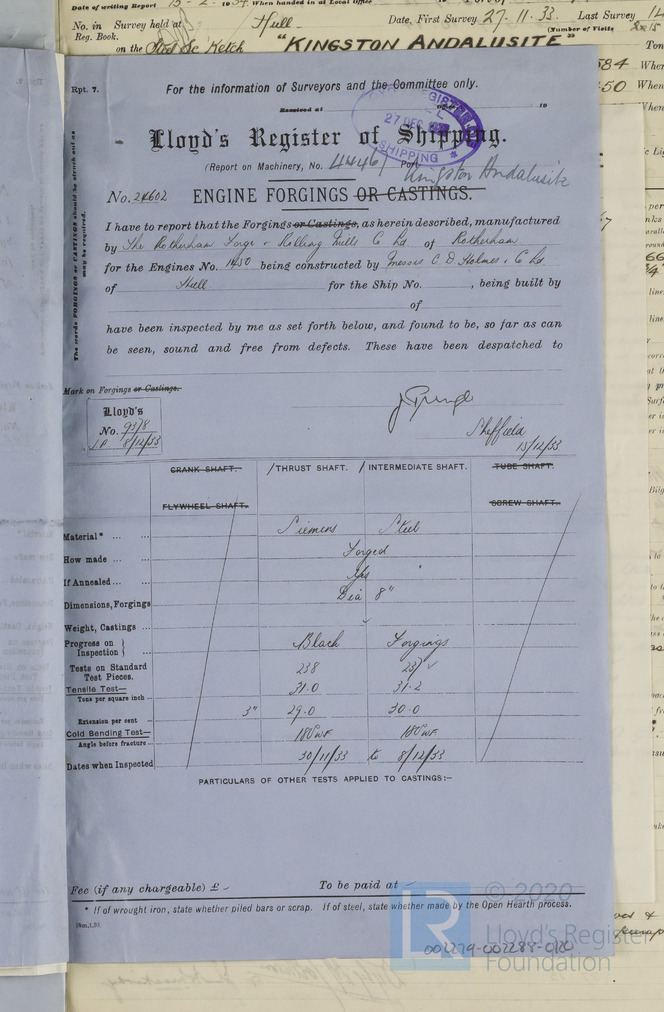 Date of writing Report 15-2-1934 When handed in at Local Office
No. in Survey held at Hull Date, First Survey 27-11-33. Last Survey
Reg. Book. (Number of Visits
on the Steel Sc Ketch "KINGSTON ANDALUSITE"
Rpt. 7.
For the information of Surveyors and the Committee only.
Received at 19
27 DEC
SHIPPING
Lloyd's Register of Shipping.
(Report on Machinery, No. 44461 Port
Kingston Andalusite
No. 24602 ENGINE FORGINGS OR CASTINGS.
The words FORGINGS or CASTINGS should be struck out as
may be required.
I have to report that the Forgings or Castings, as herein described, manufactured
by The Rotherham Forge & Rolling Mills Co Ld of Rotherham
for the Engines No. 1450 being constructed by Messrs C. D. Holmes & Co Ld
of Hull for the Ship No. , being built by
of
have been inspected by me as set forth below, and found to be, so far as can
be seen, sound and free from defects. These have been despatched to
Mark on Forgings or Castings.
Lloyd's
No. 9378
8/12/33
Sheffield
15/12/33
CRANK SHAFT. / THRUST SHAFT. / INTERMEDIATE SHAFT. TUBE SHAFT.
FLYWHEEL SHAFT. SCREW SHAFT.
Material* ... ... Siemens Steel
How made ... ... Forged
If Annealed ... ... Yes
Dimensions, Forgings Dia 8"
Weight, Castings ...
Progress on Inspection } Black Forgings
Tests on Standard
Test Pieces. 238 237
Tensile Test— 31.0 31.2
Tons per square inch
3" 29.0 30.0
Extension per cent
Cold Bending Test— 180° UNF 180° UNF
Angle before fracture
Dates when Inspected 30/11/33 to 8/12/33
PARTICULARS OF OTHER TESTS APPLIED TO CASTINGS:—
Fee (if any chargeable) £ To be paid at
* If of wrought iron, state whether piled bars or scrap. If of steel, state whether made by the Open Hearth process.
© 2020
LR Lloyd's Register
Foundation
002279-002288-0120